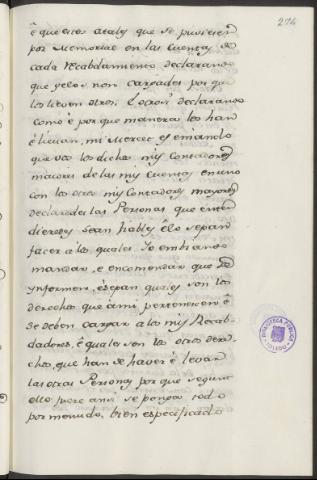 274
é que estos atales que se pusieren
por Memorial en las Cuentas de
cada Recabdamiento, declarando
que gelos non cargades por que
los lieven otros. E otrosi declarando
como é por que manera los han
é lievan, mi Merced es é mando
que vos los dichos mis Contadores
maiores de las mis Cuentas en uno
con los otros mis Contadores mayores
declaredes las Personas que enten
dieredes sean habiles é lo sepan
facer á los quales Yo embiaré
mandar, é encomendar que se
ynformen, é sepan quales son los
derechos que á mi pertenecen é
se deben cargar a los mis Recab-
dadores, é quales son los otros dere
chos, que han de haver é levar
las otras Personas, por que segunt
ello fuere ansi se ponga todo
por menudo, bien especificado
BIBLIOTECA PUBLICA
TOLEDO